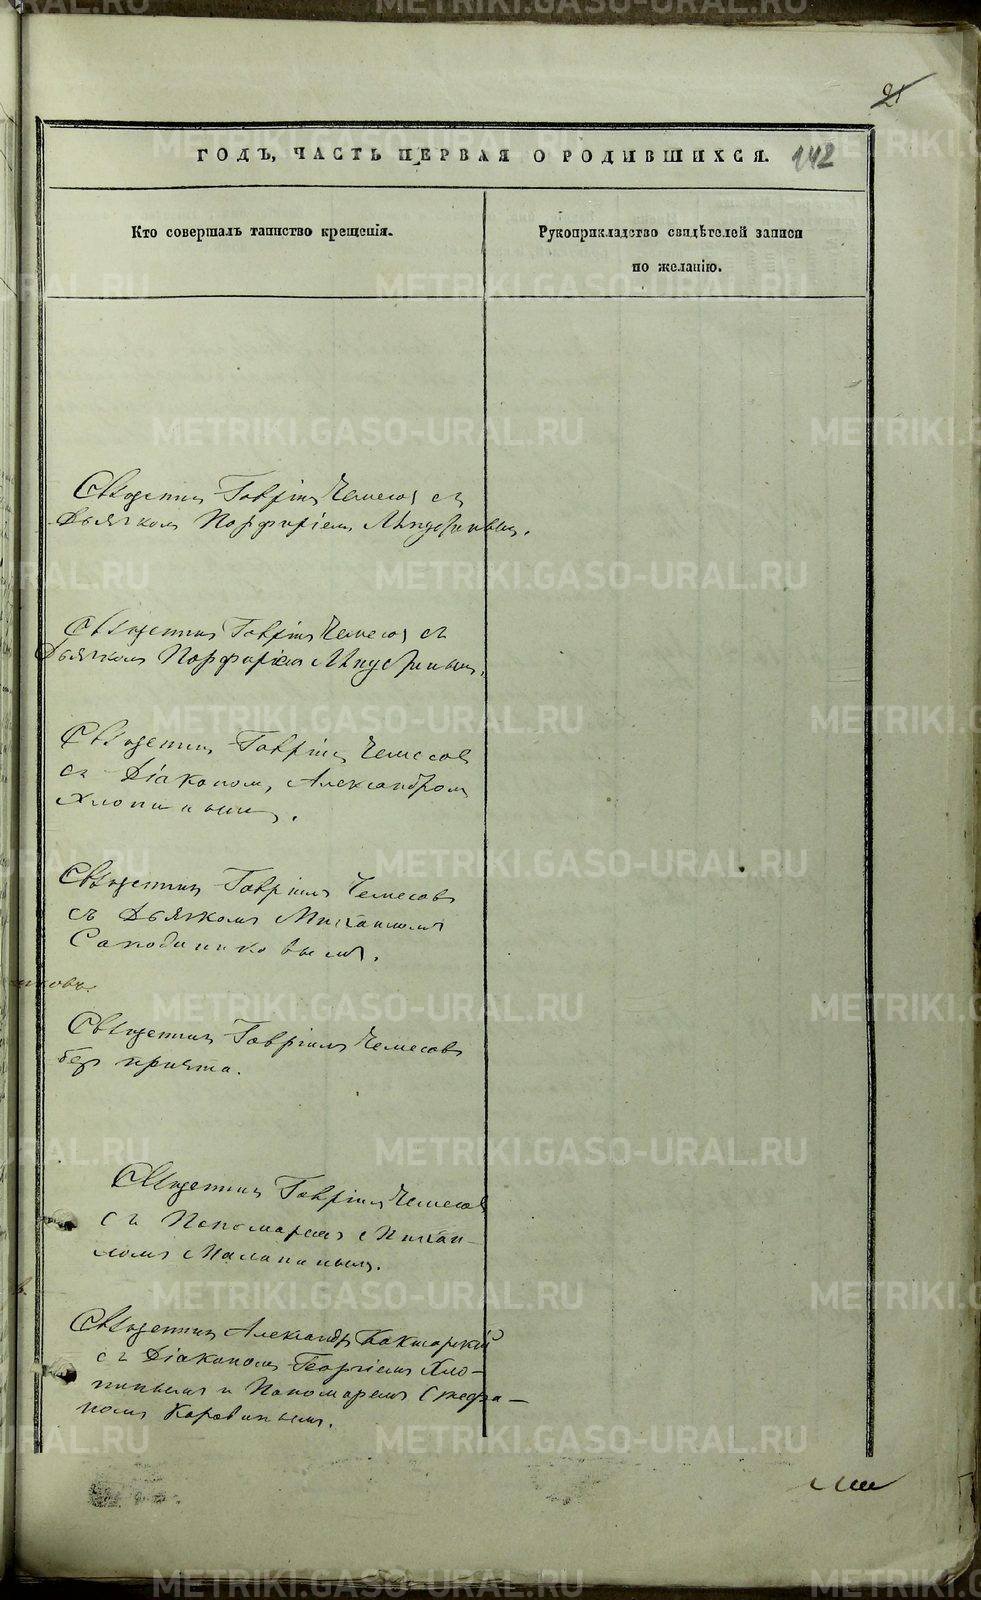 21
ГОДЪ, ЧАСТЬ ПЕРВАЯ О РОДИВШИХСЯ. 142
Кто совершалъ таинство крещенія.
Рукоприкладство свидѣтелей записи
по желанію.
Священник Гавріил Чемесов съ
Дьячком Порфиріем
Священник Гавріил Чемесов съ
Дьячком Порфиріем
Священник Гавріил Чемесов
съ Діаконом Александром
Хлопиным.
Священник Гавріилъ Чемесовъ
съ Дьячкомъ Михаиломъ
Сапожниковымъ.
Священник Гавріилъ Чемесовъ
без причта.
Священник Гавріилъ Чемесов
съ Пономаремъ Михаи-
ломъ Маланиным.
Священник Александр
съ Діаконом Георгіем Хло-
пиным и Пономарем Стефа-
ном Коровиным.
METRIKI.GASO-URAL.RU